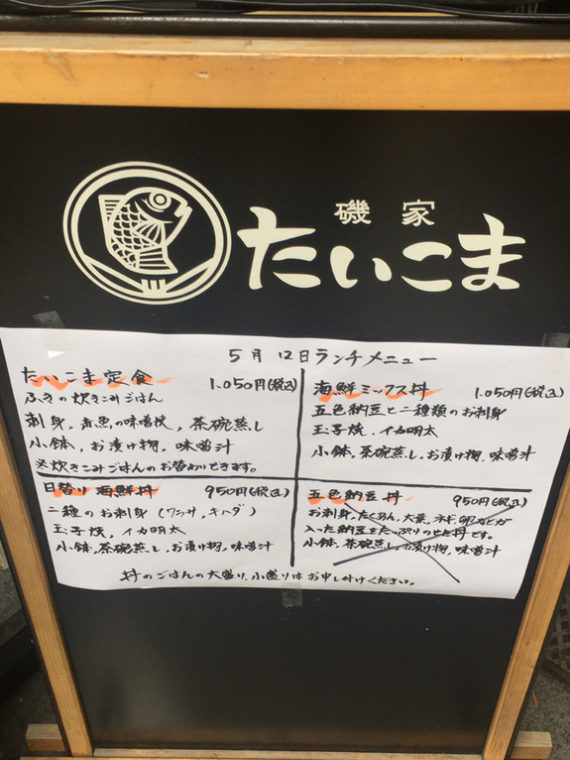 磯家
たいこま
5月12日ランチメニュー
たいこま定食 1.050円(税込)
ふきの炊きこみごはん
刺身,赤魚の味噌焼,茶碗蒸し
小鉢,お漬け物,味噌汁
※炊きこみごはんのお替わりできます。
海鮮ミックス丼 1.050円(税込)
五色納豆と二種類のお刺身
玉子焼.イカ明太
小鉢,茶碗蒸し.お漬け物.味噌汁
日替り海鮮丼 950円(税込)
二種のお刺身(ワラサ,キハダ)
玉子焼,イカ明太
小鉢,茶碗蒸し,お漬け物,味噌汁
五色納豆丼 950円(税込)
お刺身,たくあん,大葉,ネギ,卵などが
入った納豆をたっぷりのせた丼です。
小鉢.茶碗蒸し,お漬け物,味噌汁
丼のごはんの大盛り.小盛りはお申し付けください。